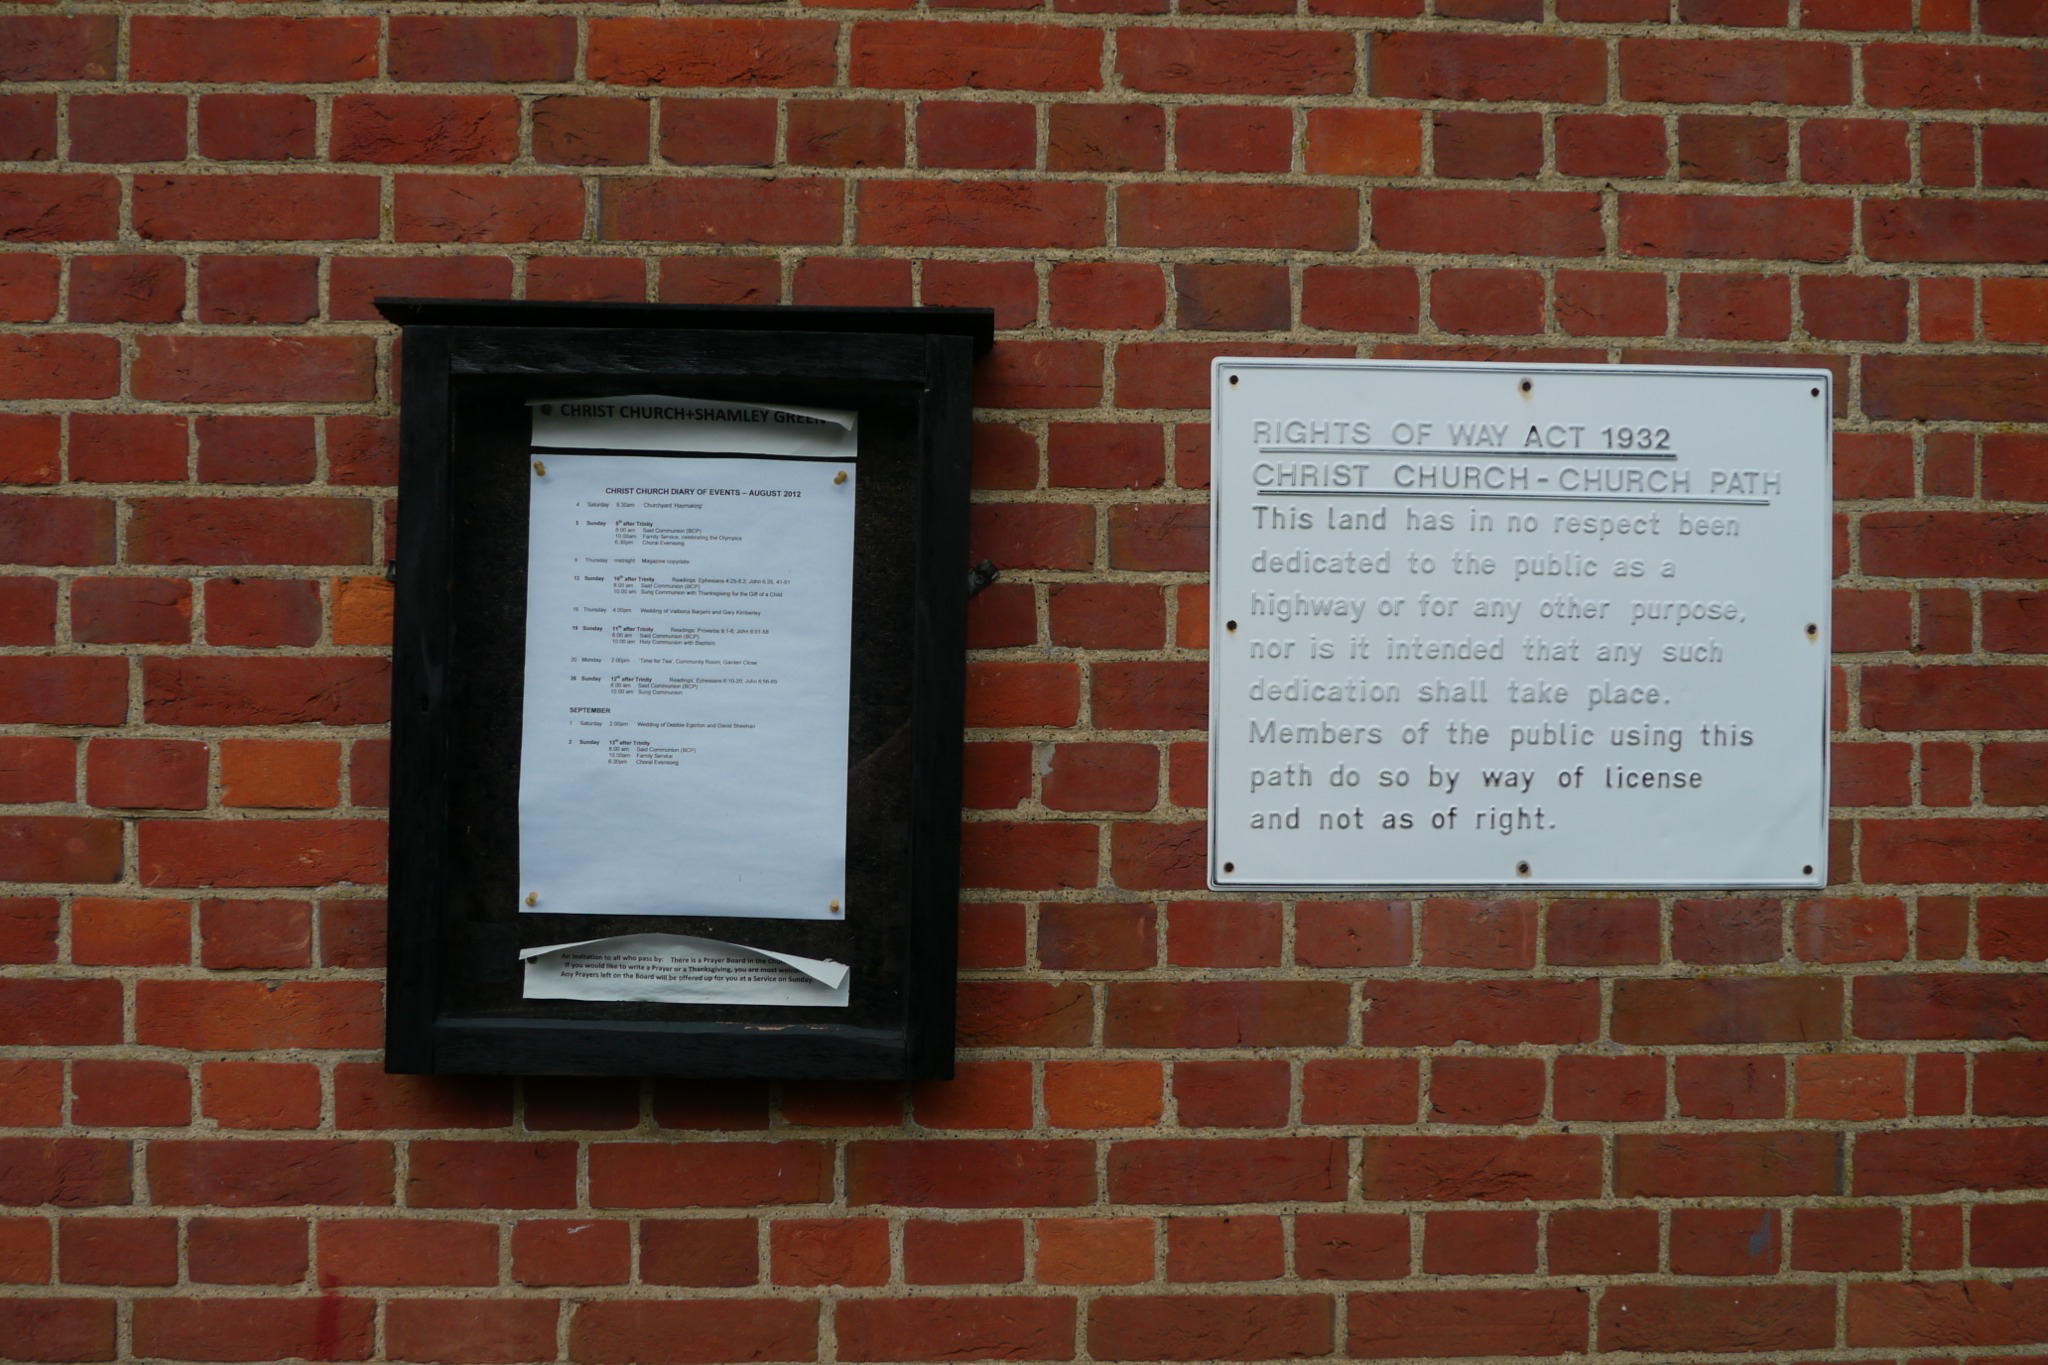 CHRIST CHURCH+SHAMLEY GREEN
CHRIST CHURCH DIARY OF EVENTS – AUGUST 2012
4 Saturday 9.30am Churchyard 'Haymaking'
5 Sunday 9th after Trinity
8.00 am Said Communion (BCP)
10.00am Family Service, celebrating the Olympics
6.30pm Choral Evensong
Thursday midnight Magazine copydate
12 Sunday 10th after Trinity Readings: Ephesians 4:25-5:2; John 6:35, 41-51
8.00 am Said Communion (BCP)
10.00 am Sung Communion with Thanksgiving for the Gift of a Child
Thursday 4.00pm Wedding of Valbona Barjami and Gary Kimberley
19 Sunday 11th after Trinity Readings: Proverbs 9:1-6; John 6:51-58
8.00 am Said Communion (BCP)
10.00 am Holy Communion with Baptism
20 Monday 2.00pm 'Time for Tea', Community Room, Garden Close
26 Sunday 12th after Trinity Readings: Ephesians 6:10-20; John 6:56-69
8.00 am Said Communion (BCP)
10.00 am Sung Communion
SEPTEMBER
1 Saturday 2.00pm Wedding of Debbie Egerton and David Sheehan
2 Sunday 13th after Trinity
8.00 am Said Communion (BCP)
10.00am Family Service
6.30pm Choral Evensong
An invitation to all who pass by: There is a Prayer Board in the
If you would like to write a Prayer or a Thanksgiving, you are most
Any Prayers left on the Board will be offered up for you at a Service on Sunday.
RIGHTS OF WAY ACT 1932
CHRIST CHURCH - CHURCH PATH
This land has in no respect been
dedicated to the public as a
highway or for any other purpose,
nor is it intended that any such
dedication shall take place.
Members of the public using this
path do so by way of license
and not as of right.